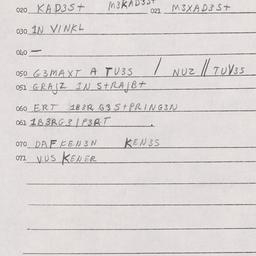 020 KAD3S+ M3KAD3S+ 021 M3XAD3S+
030 1N VINKL
040 —
050 G3MAXT A TU3S / NUZ // TUV3S
051 GRAJZ 1N S+RAJB+
060 ERT 1B3R G3S+PR1NG3N
061 1B3RG3/P3RT .
070 DAFKEN3N KEN3S
071 VUS KENER